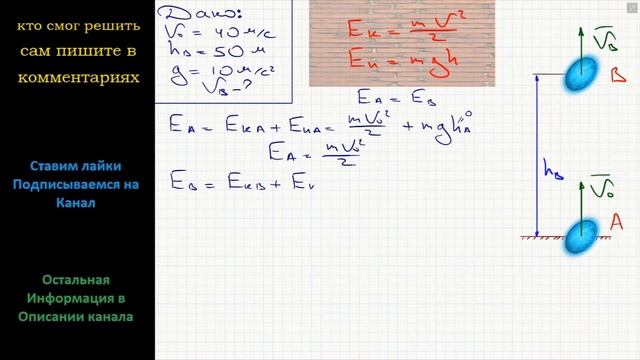 кто смог решить
сам пишите в
комментариях
Ставим лайки
Подписываемся на
Канал
Остальная
Информация в
Описании канала
Дано:
V₀ = 40 м/с
h_B = 50 м
g = 10 м/с²
V_B - ?
E_к = mV²/2
E_п = mgh
E_A = E_B
E_A = E_кA + E_пA = mV₀²/2 + mgh_A = 0
E_A = mV₀²/2
E_B = E_кB + E_п
V_B
B
h_B
V₀
A